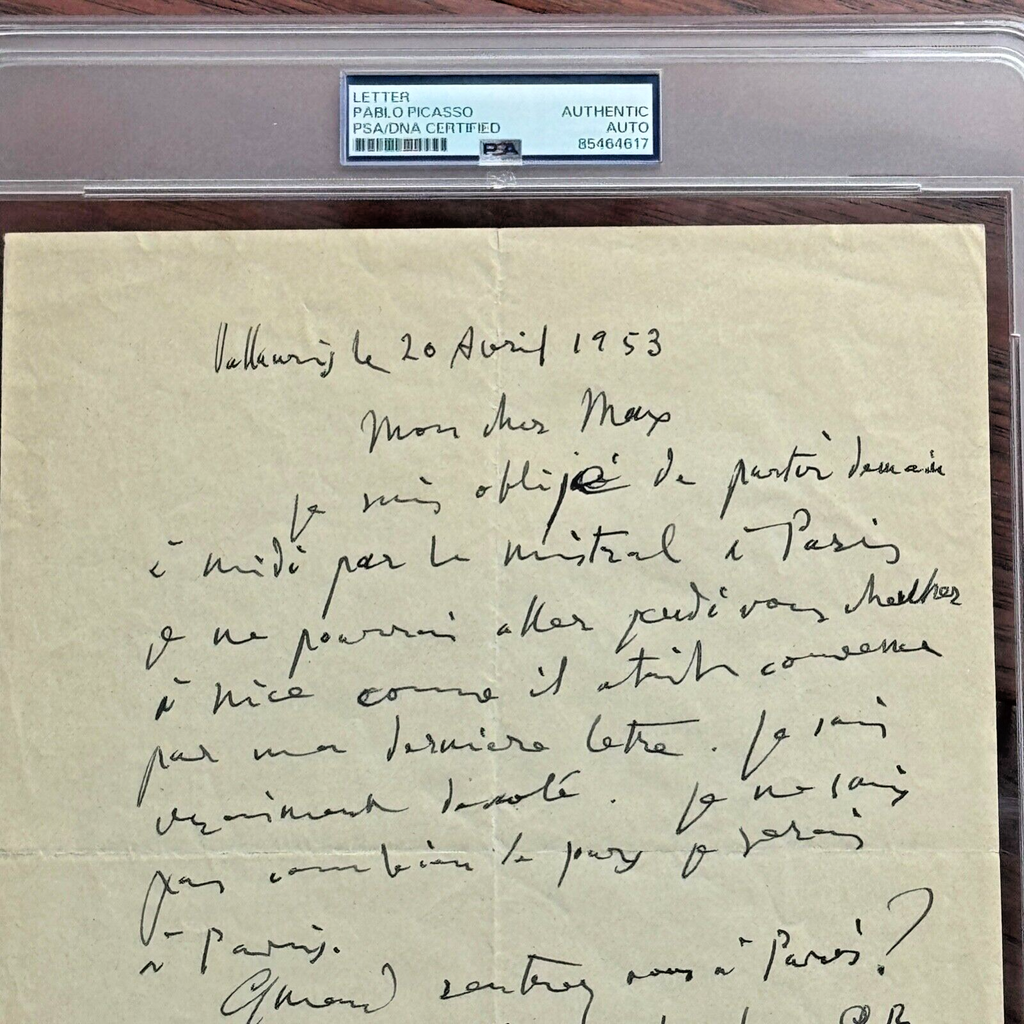 LETTER
PABLO PICASSO AUTHENTIC
PSA/DNA CERTIFIED AUTO
PSA 85464617
Vallauris le 20 Avril 1953
Mon cher Max
je suis obligé de partir demain
à midi par le mistral à Paris
je ne pourrai aller jeudi vous chercher
à Nice comme il était convenu
par ma derniere letre. Je suis
vraiment desolé. je ne sais
pas combien de je serai
à Paris.
Quand rentrez vous à Paris?